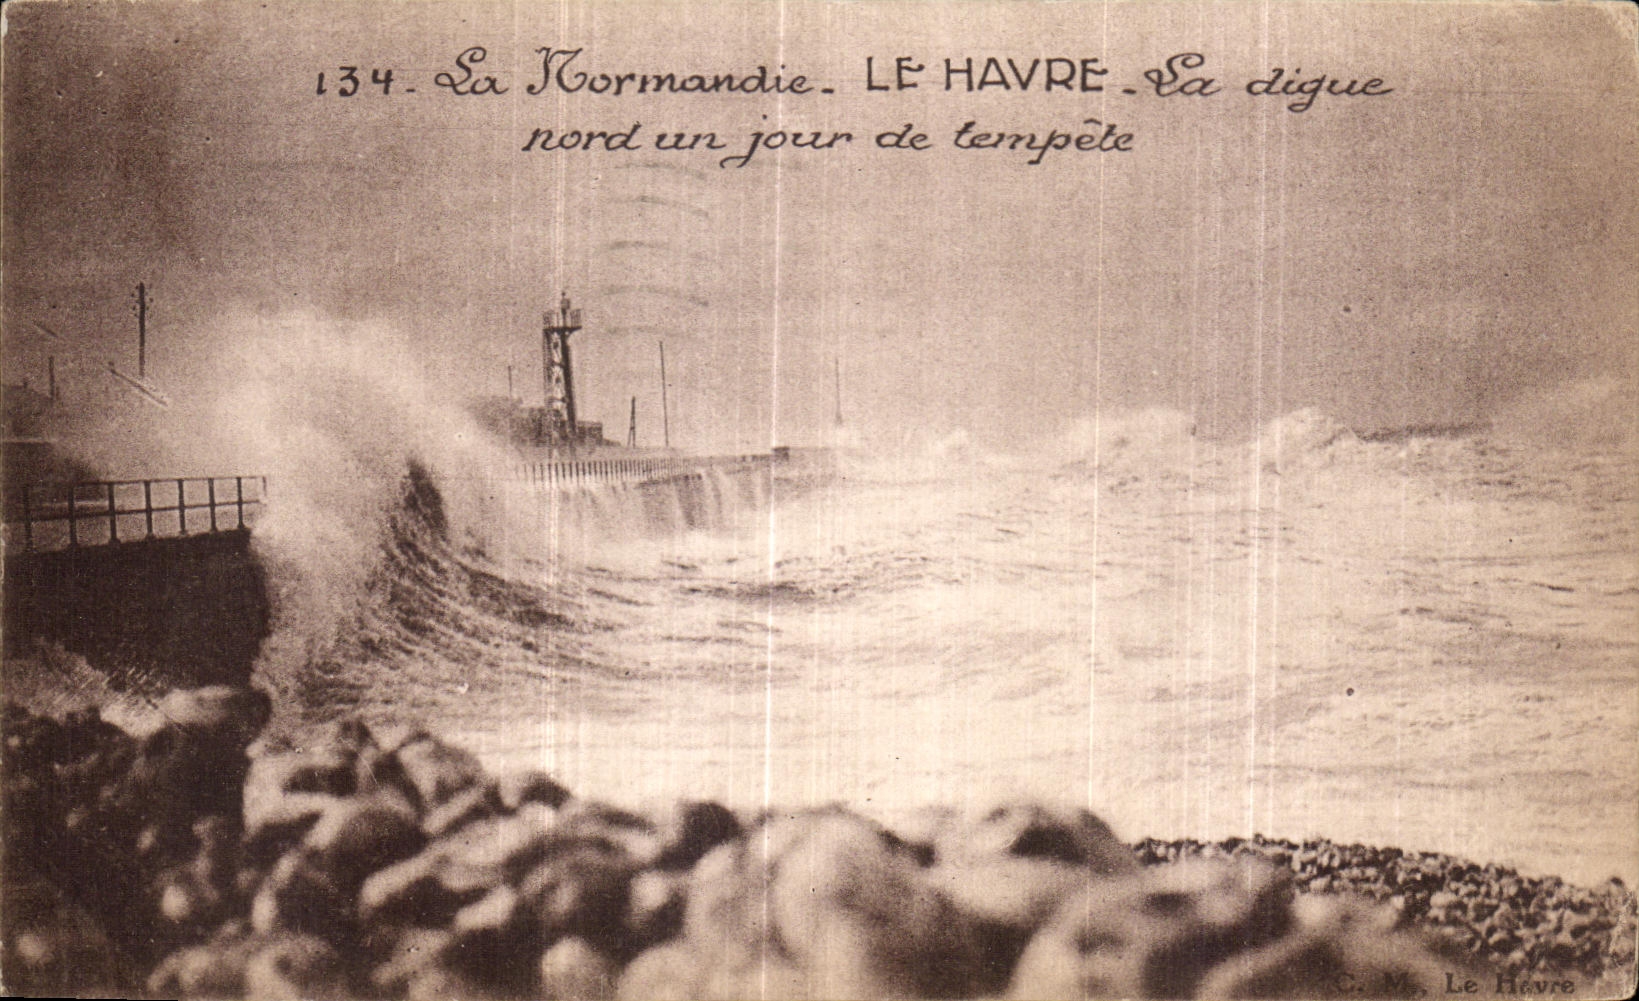 134 - La Normandie - LE HAVRE - La digue
nord un jour de tempête
C. M., Le Havre